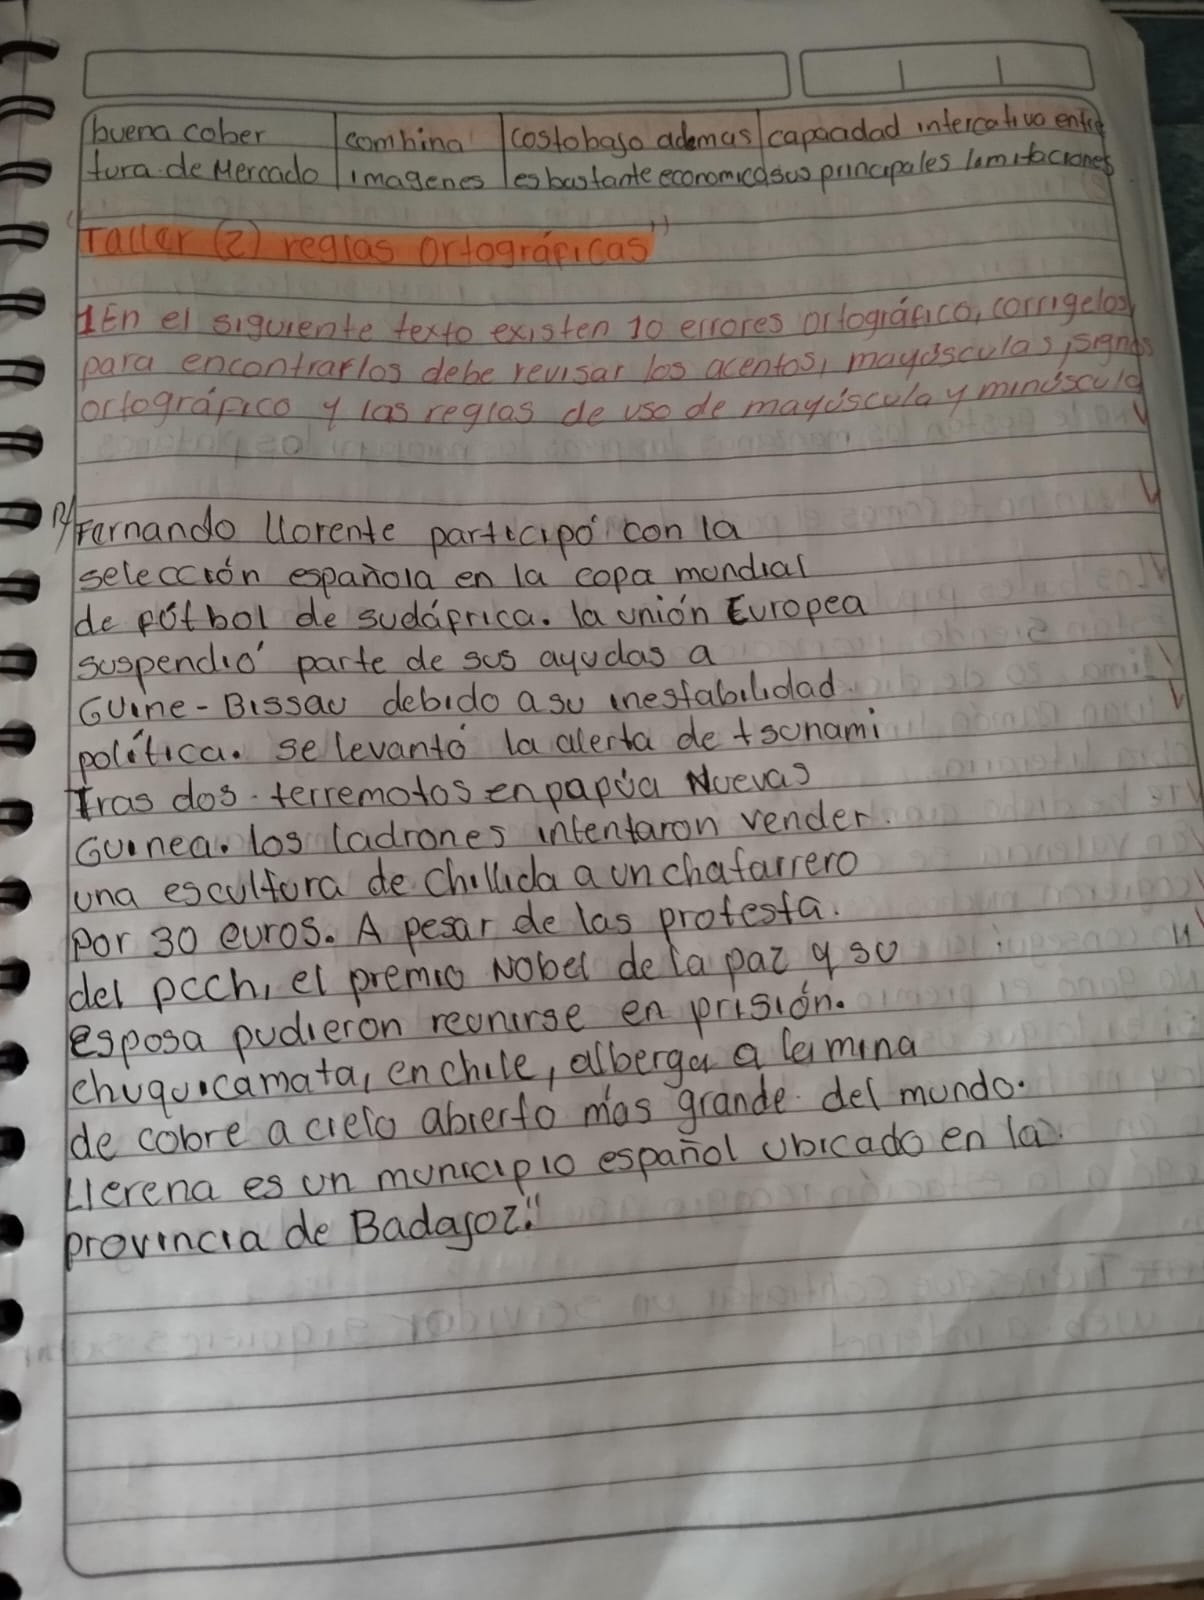 buena cober
tura de Mercado
combina
imagenes
costo bajo ademas
es bastante economico
capacidad intercativo entre
sus principales limitaciones
"Taller (2) reglas ortográficas"
1 En el siguiente texto existen 10 errores ortográfico, corrigelos,
para encontrarlos debe revisar los acentos, mayúsculas, signos
ortográfico y las reglas de uso de mayúscula y minúscula
R/ Fernando llorente participó con la
selección española en la copa mundial
de fútbol de sudáfrica. la unión Europea
suspendió parte de sus ayudas a
Guine-Bissau debido a su inestabilidad
política. se levantó la alerta de tsunami
Tras dos terremotos en papúa Nuevas
Guinea. los ladrones intentaron vender
una escultura de chillida a un chatarrero
por 30 euros. A pesar de las protesta.
del pcch, el premio Nobel de la paz y su
esposa pudieron reunirse en prisión.
chuquicamata, en chile, alberga a la mina
de cobre a cielo abierto más grande del mundo.
Llerena es un municipio español ubicado en la
provincia de Badajoz."